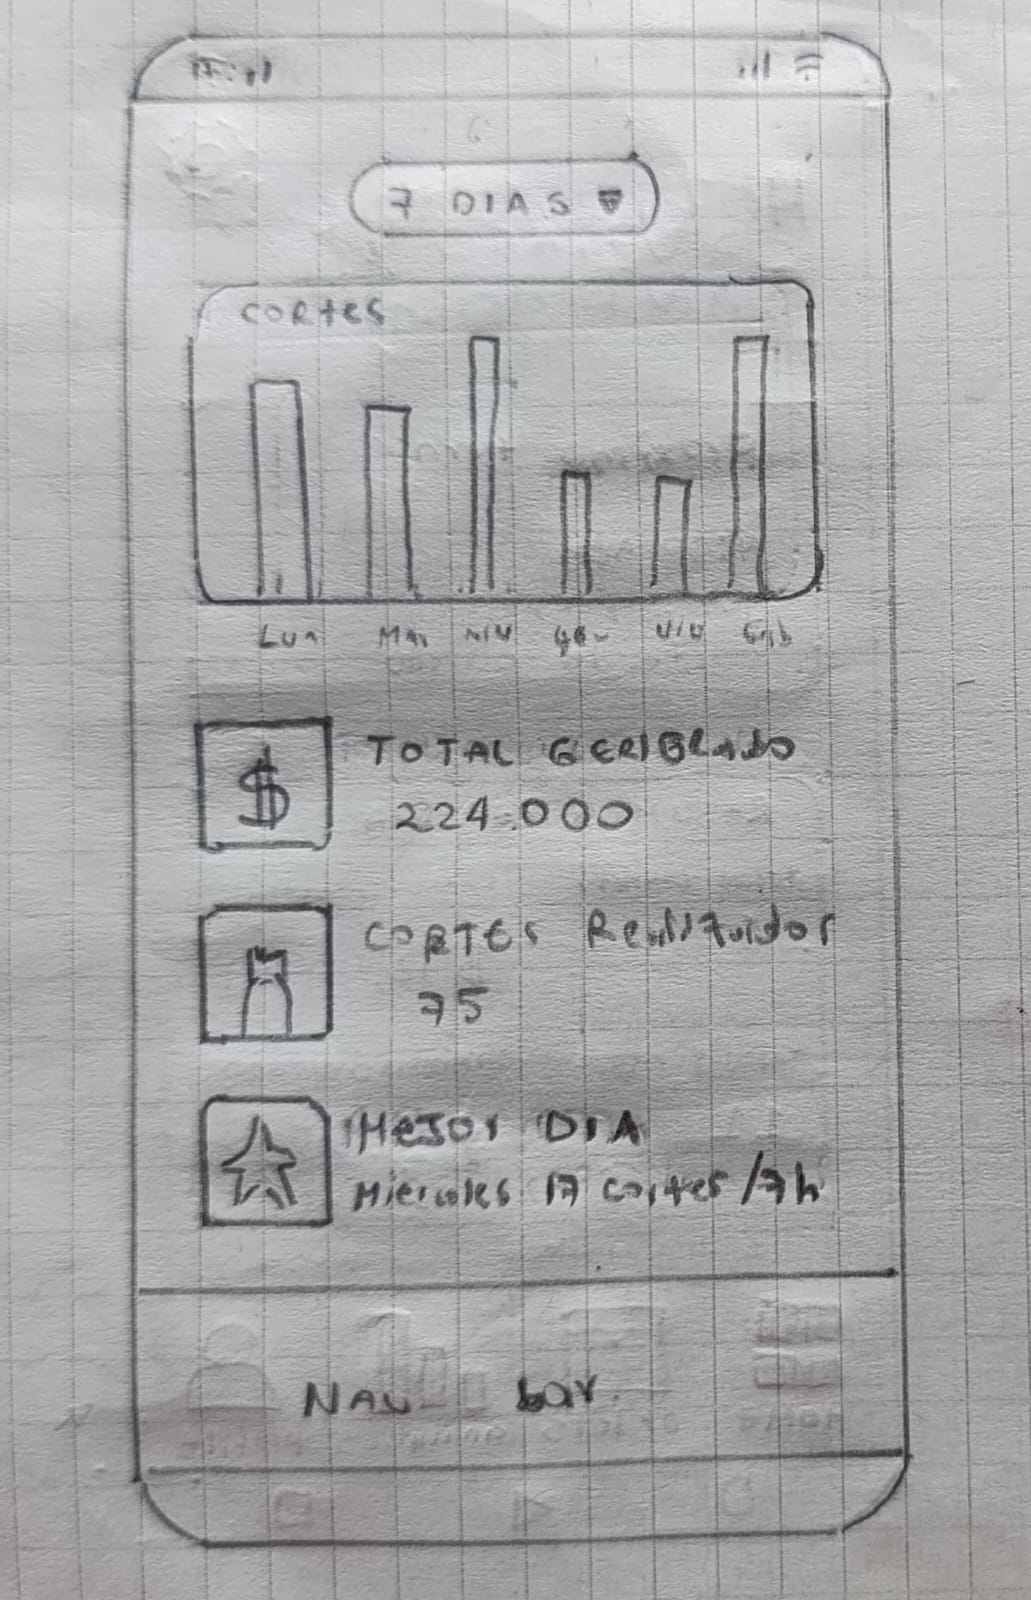 7 DIAS
CORTES
Lun Mar Mie Jue Vie Sab
$
TOTAL GENERADO
224.000
CORTES Realizados
75
MEJOR DIA
Miercoles 17 cortes /7h
NAV bar.